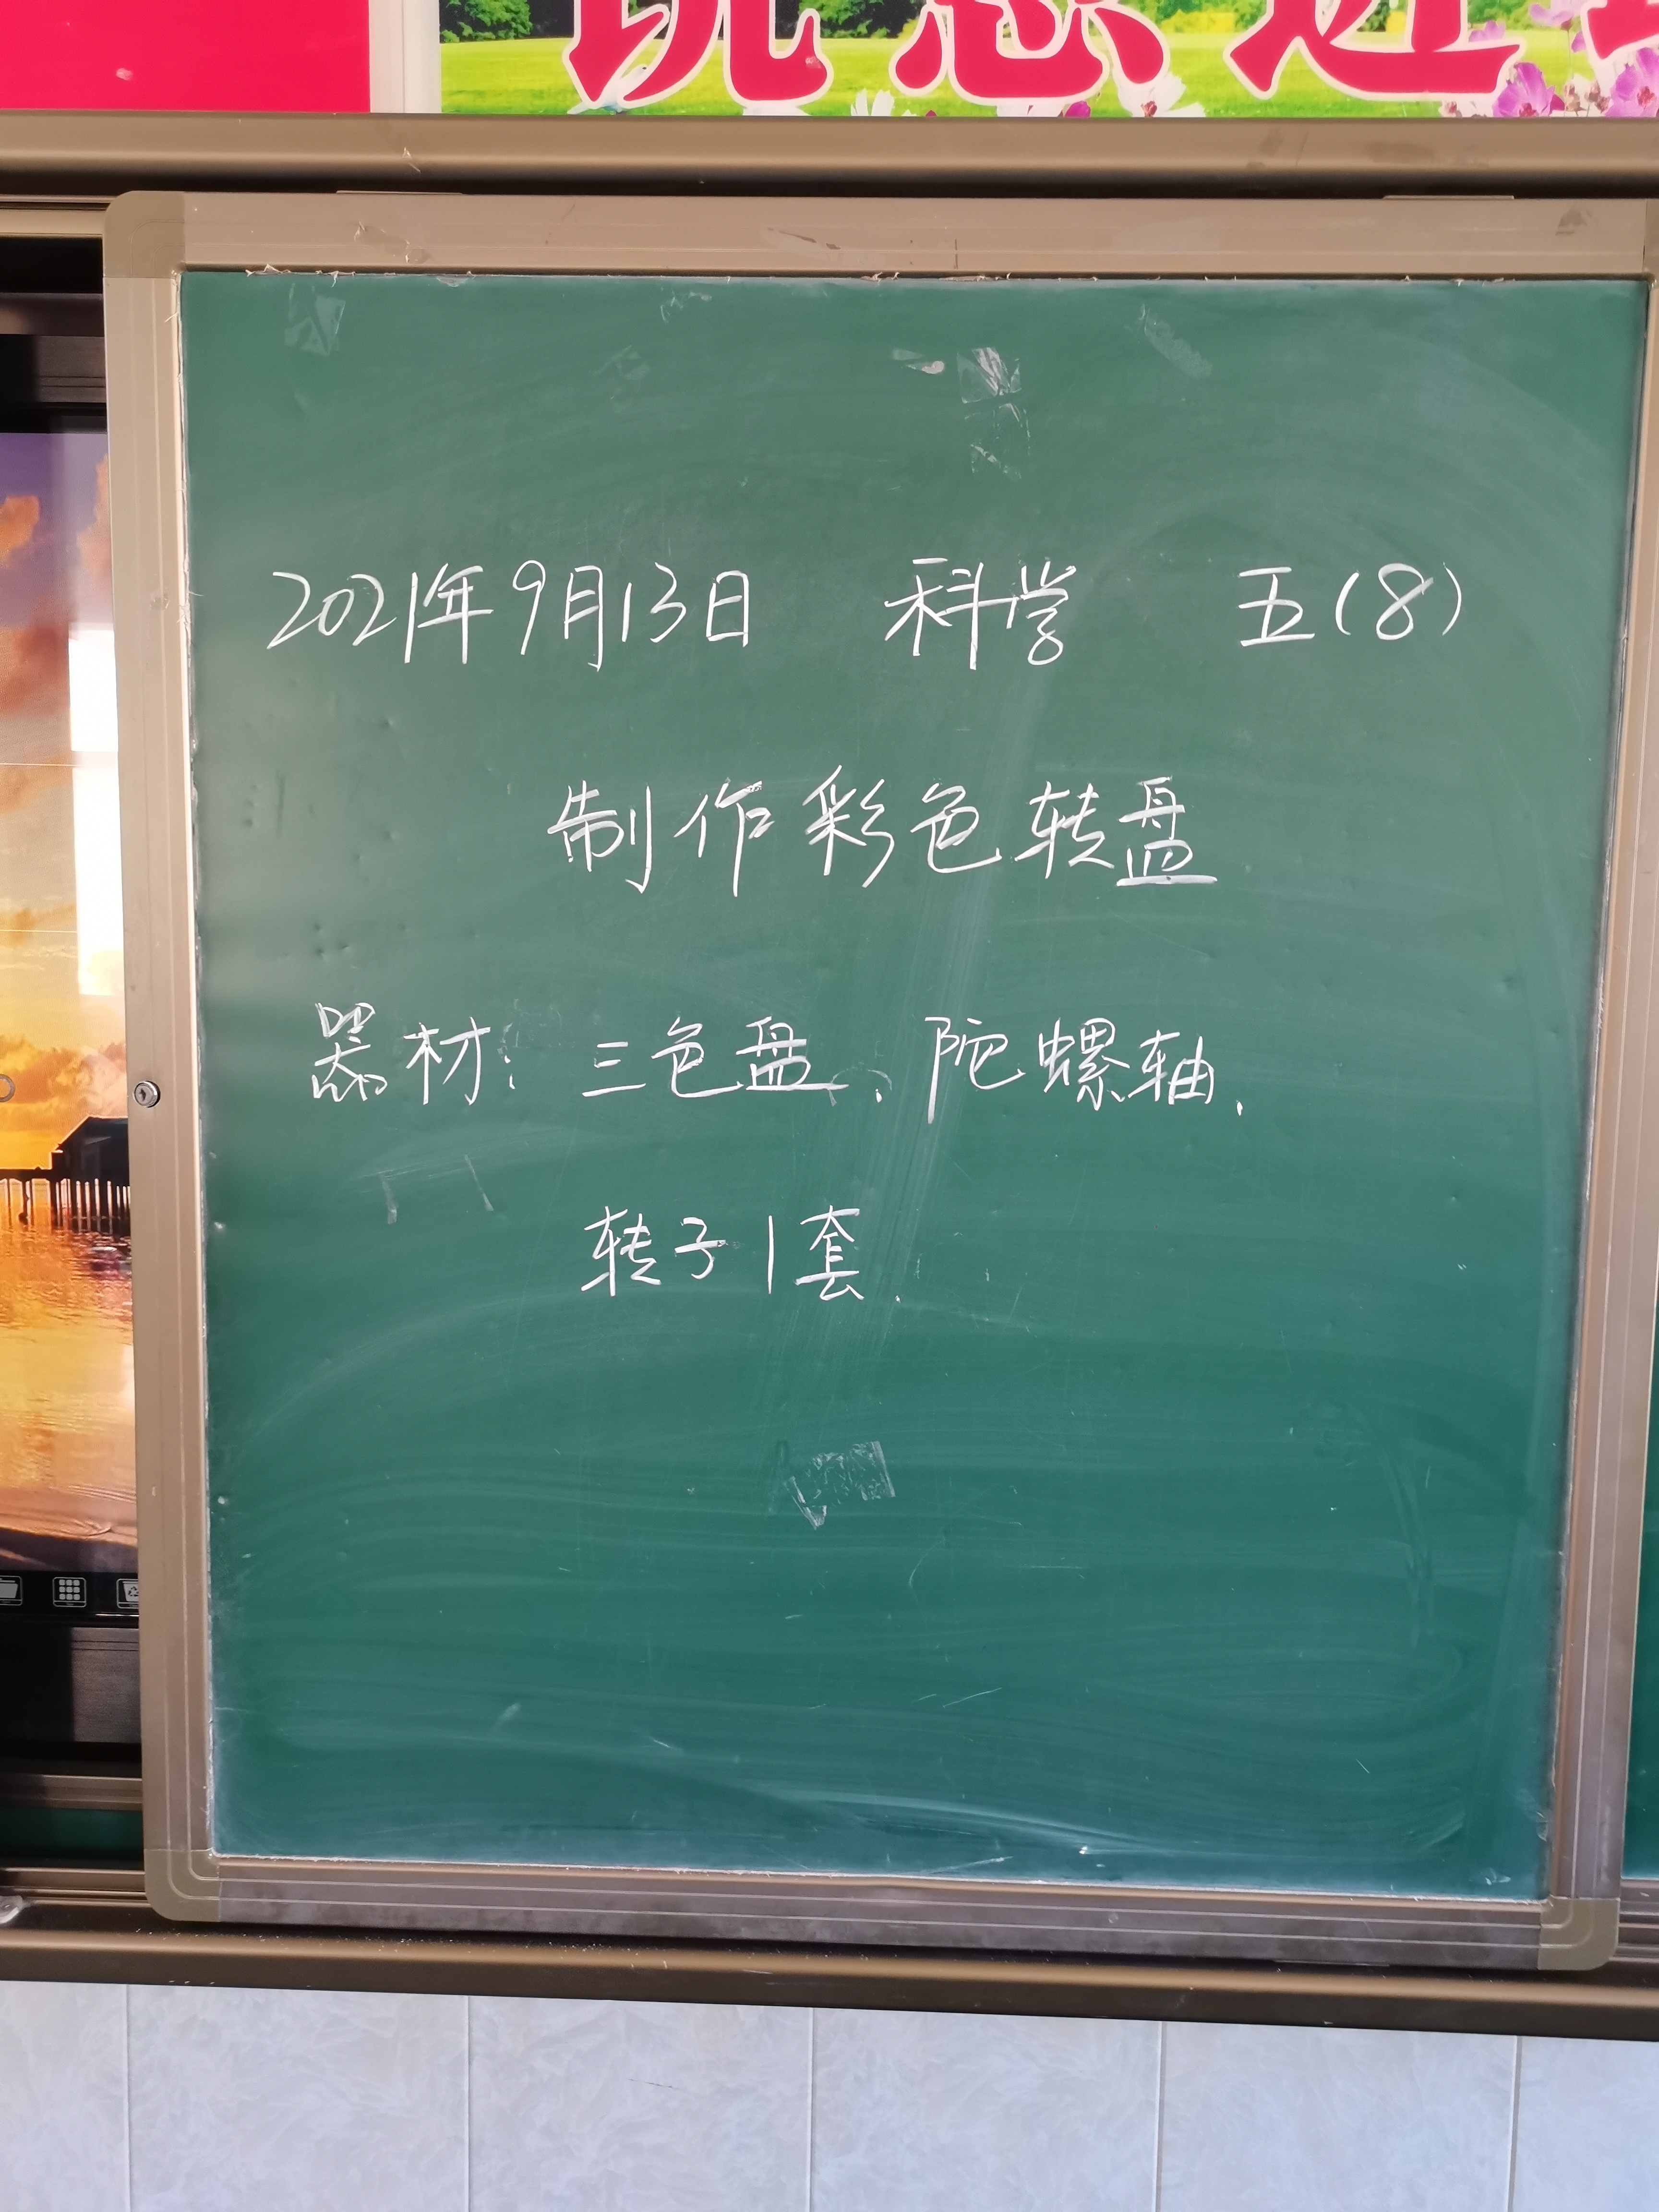 2021年9月13日 科学 五(8)
制作彩色转盘
器材：三色盘、陀螺轴、
转子1套.